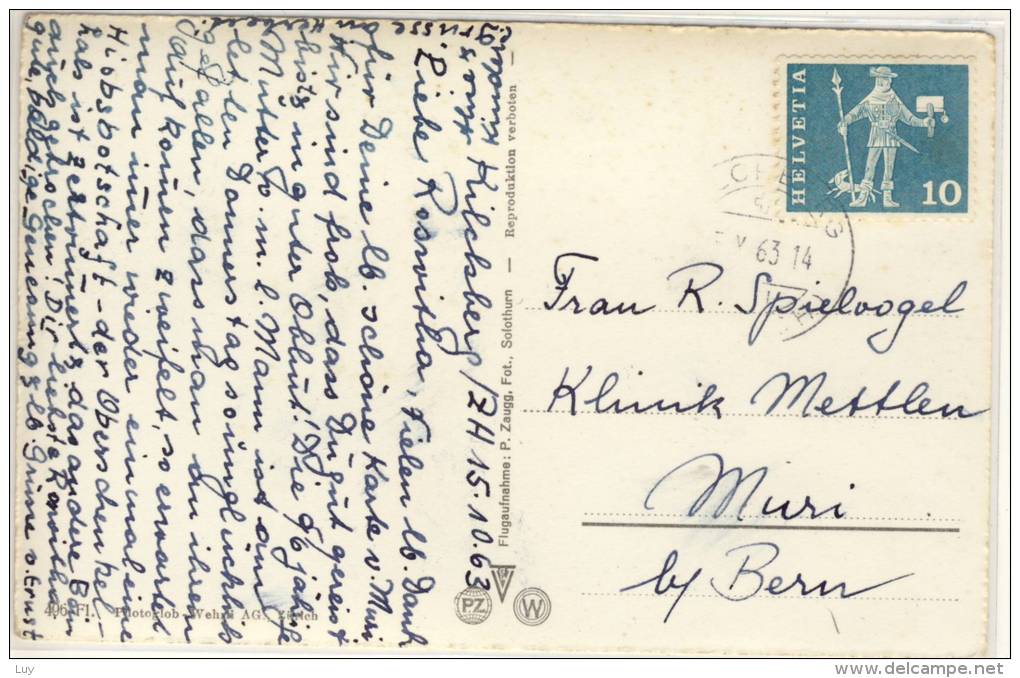 Kilchberg/ZH 15.10.63
Liebe Roswitha, Vielen lb. Dank
für Deine lb. schöne Karte v. Muri
Wir sind froh, dass Du gut gereist
bist, in guter Obhut! Die 96 jährige
Mutter v. m. l. Mann ist am
letzten Donnerstag so unglücklich
gefallen, dass man an ihrem
Aufkommen zweifelt, so erwartet
man immer wieder einmal eine
Hiobsbotschaft - der Oberschenkel-
hals ist zertrümmert, das andere Bein
auch gebrochen! Dir liebste Roswitha
gute, baldige Genesung & lb. Grüsse v. Ernst
Flugaufnahme: P. Zaugg, Fot., Solothurn — Reproduktion verboten —
HELVETIA
10
63 14
Frau R. Spielvogel
Klinik Mettlen
Muri
b/ Bern
PZ
W
496 Fl. Photoglob-Wehrli AG., Zürich
Luy
delcampe.net